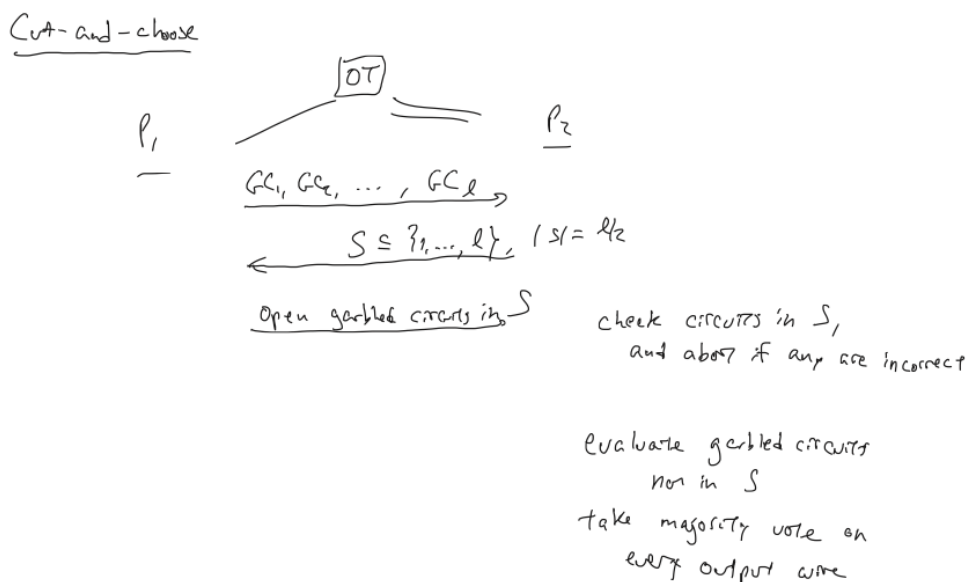 Cut-and-choose
OT
P₁
P₂
GC₁, GC₂, ..., GCℓ
S ⊆ {1,...,ℓ}, |S| = ℓ/2
open garbled circuits in S
check circuits in S,
and abort if any are incorrect
evaluate garbled circuits
not in S
take majority vote on
every output wire